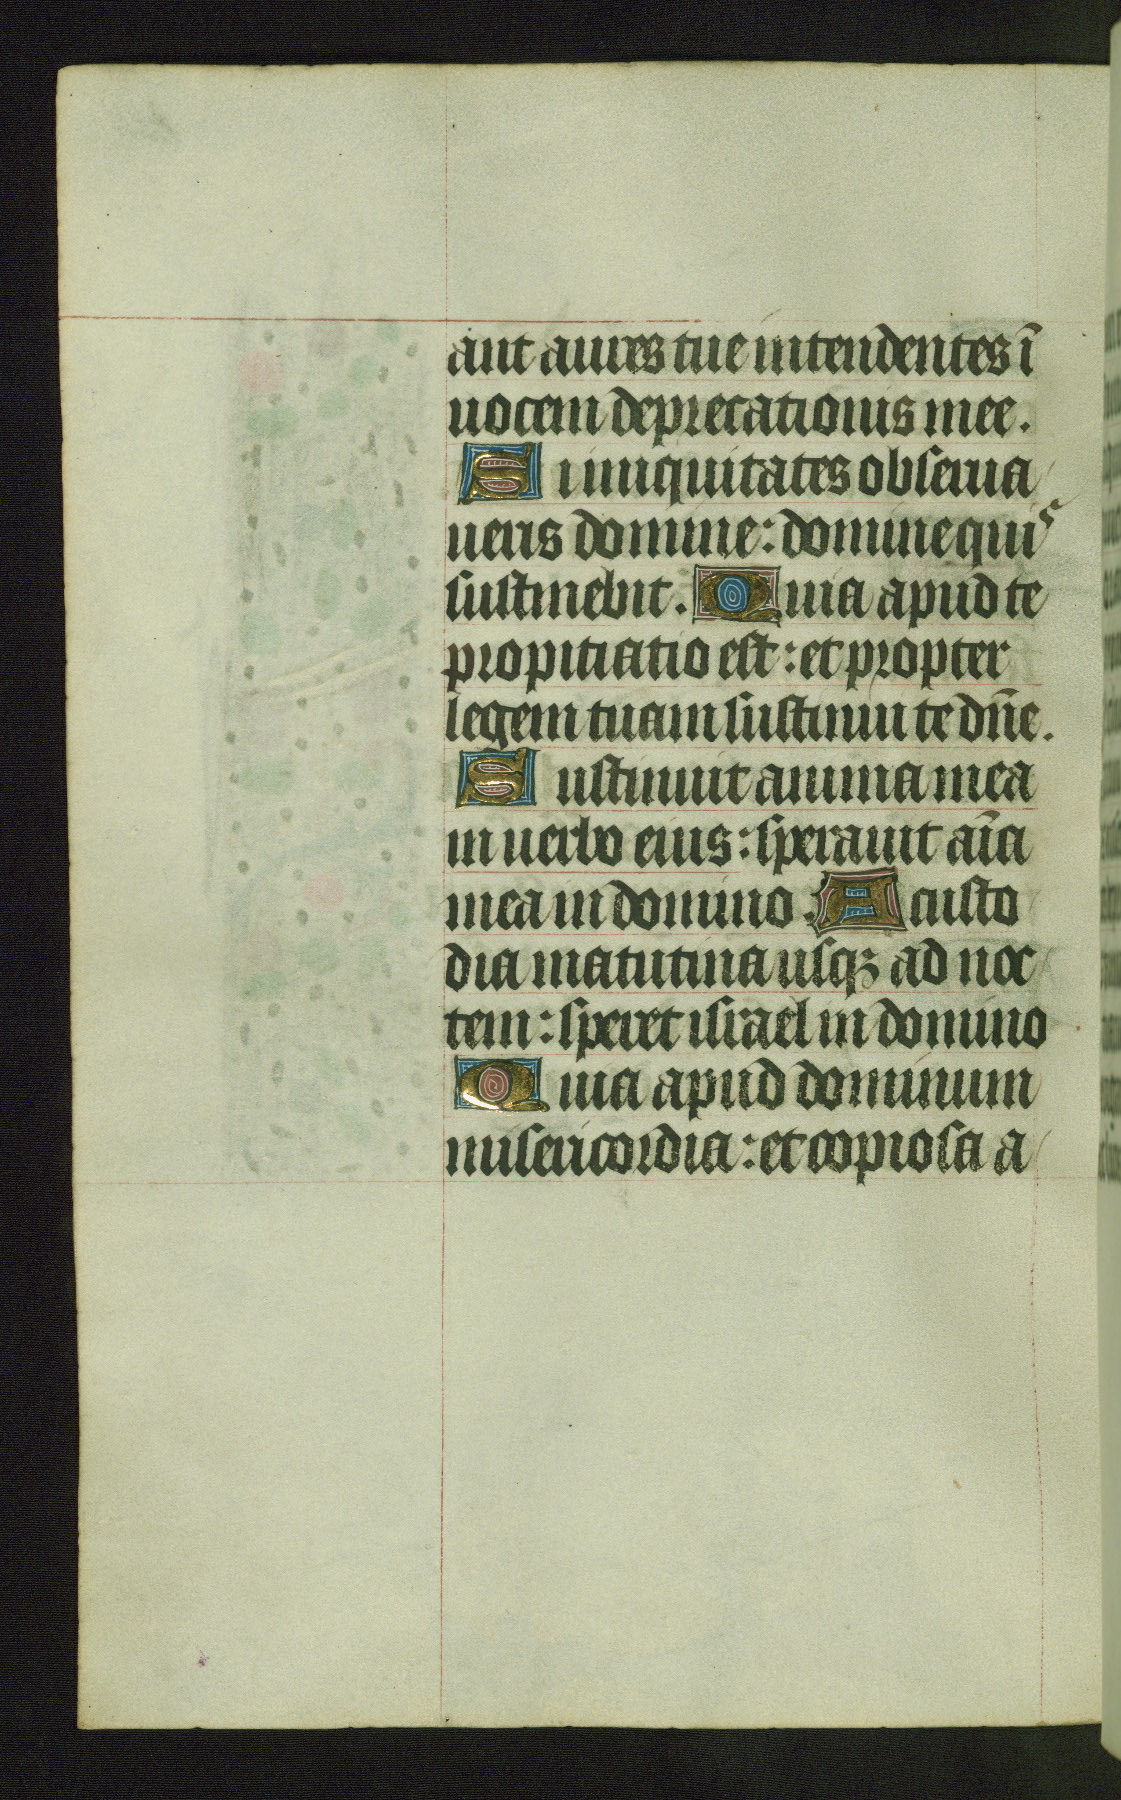 ant aures tue intendentes ī
uocem deprecationis mee.
Si iniquitates obserua
ueris domine: domine quis
sustinebit. Quia apud te
propitiatio est: et propter
legem tuam sustinui te dn̄e.
Sustinuit anima mea
in uerbo eius: sperauit aīa
mea in domino. A custo
dia matutina usqꝫ ad noc
tem: speret israel in domino
Quia apud dominum
misericordia: et copiosa a